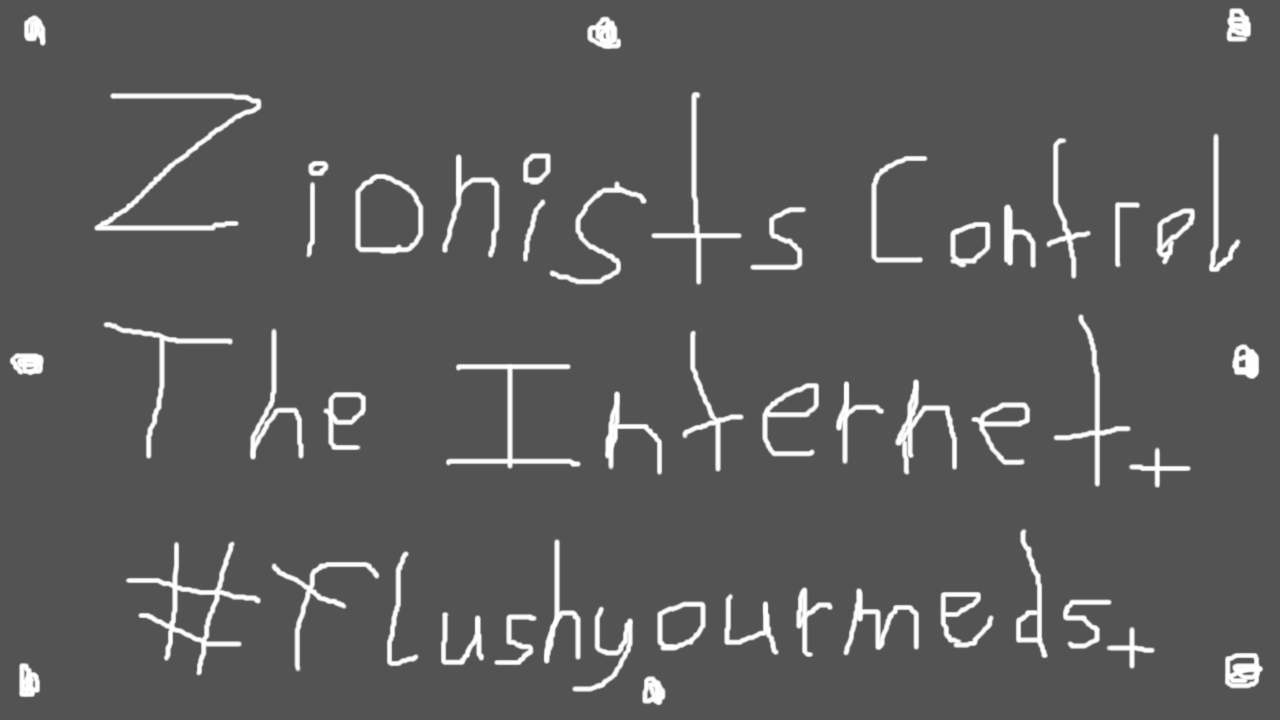 Zionists Control
The Internet.
#Flushyourmeds.